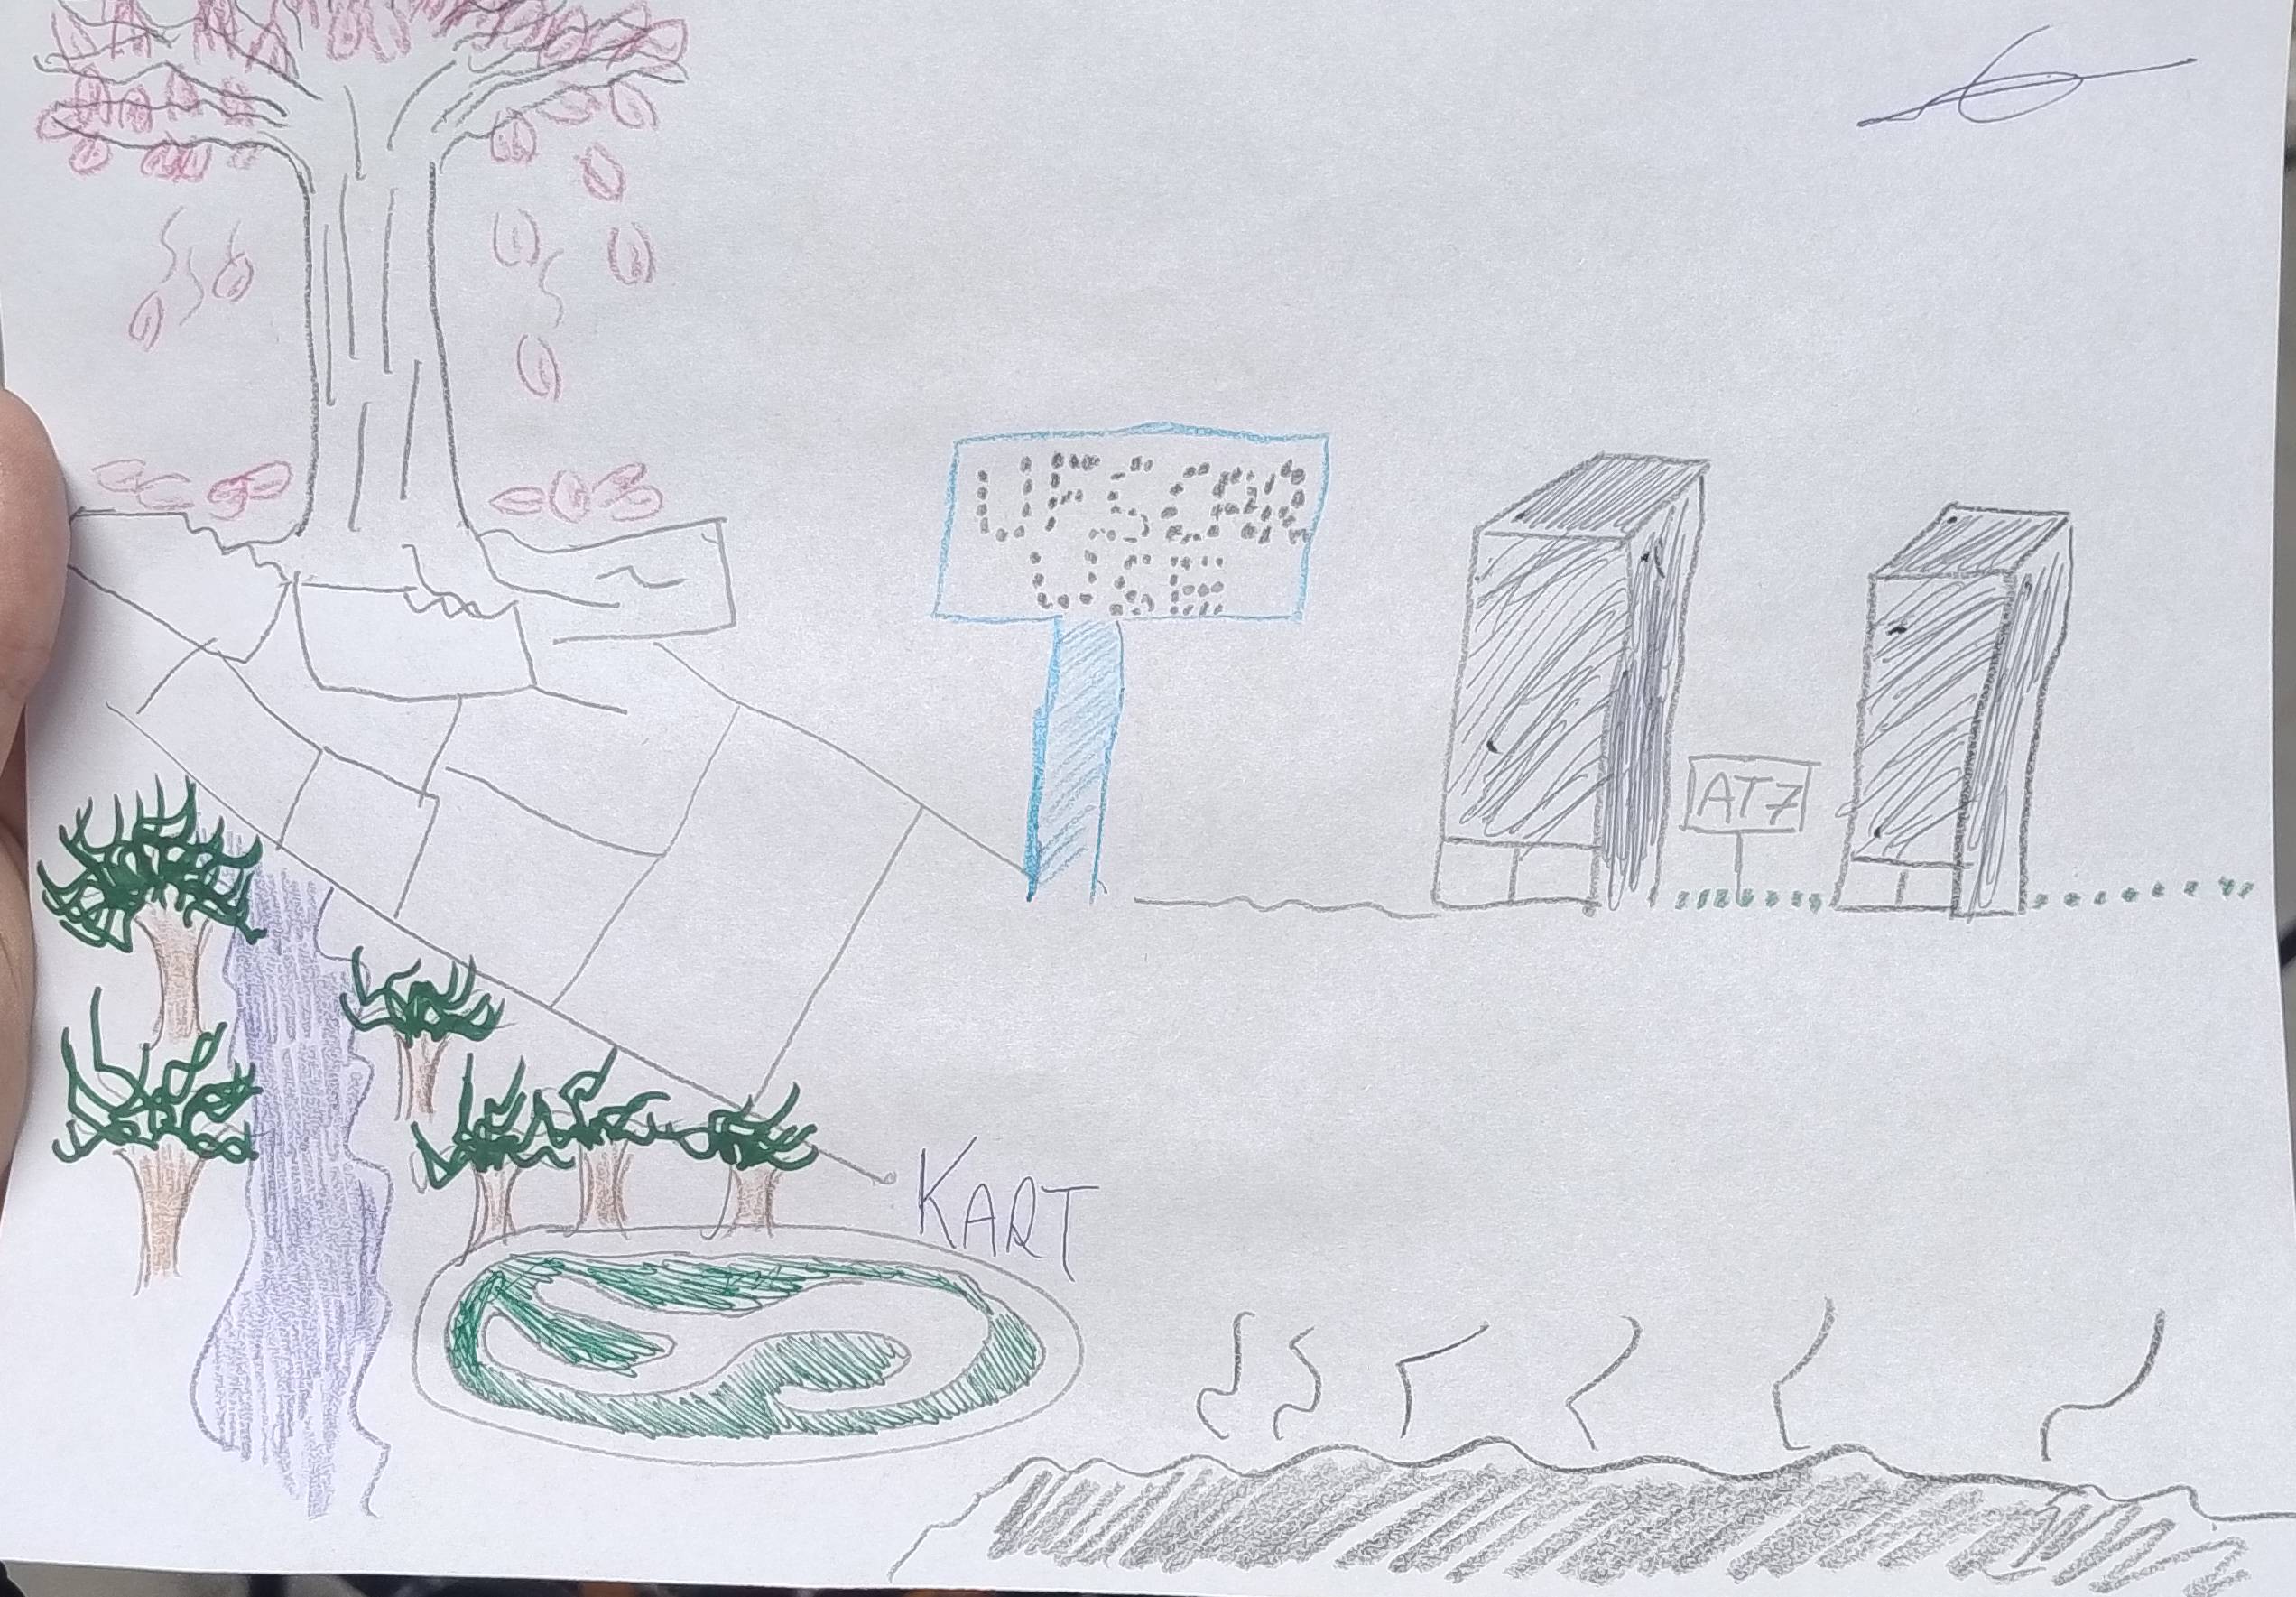 UFSCAR
USE
AT7
KART